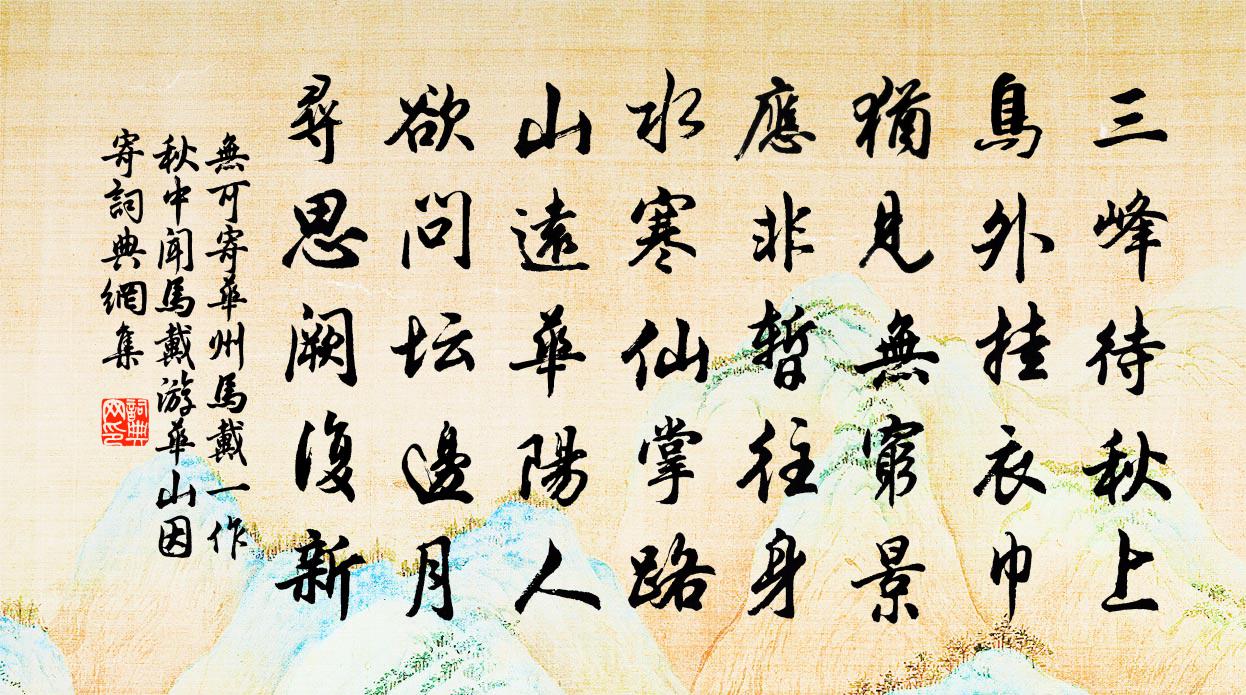 三峰待秋上
鳥外挂衣巾
猶見無窮景
應非暫往身
水寒仙掌路
山遠華陽人
欲问坛邊月
尋思闕復新
無可寄華州馬戴一作
秋中闻馬戴游華山因
寄詞典網集
詞典
网印